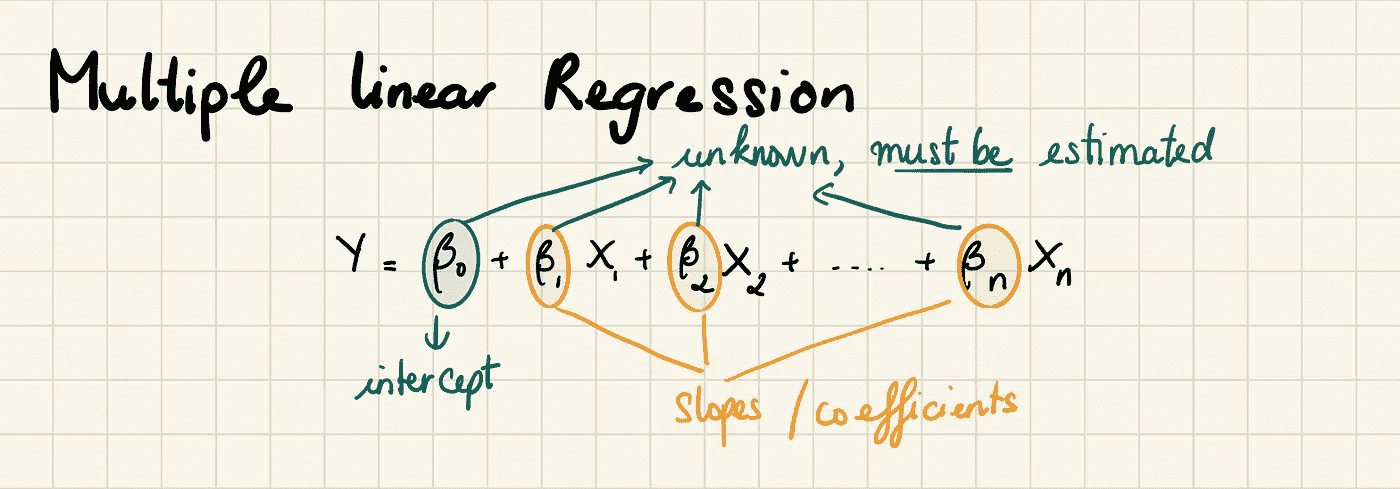 Multiple linear Regression
unknown, must be estimated
Y = β₀ + β₁ X₁ + β₂ X₂ + .... + βn Xn
intercept
Slopes / coefficients